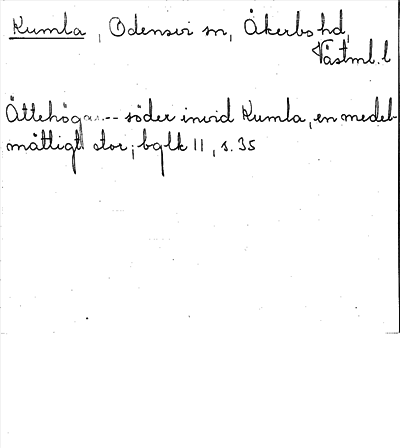 Kumla, Odensvi sn, Åkerbo hd,
Västml. l
Ättehögar -- söder invid Kumla, en medel-
måttigt stor; bglk 11, s. 35